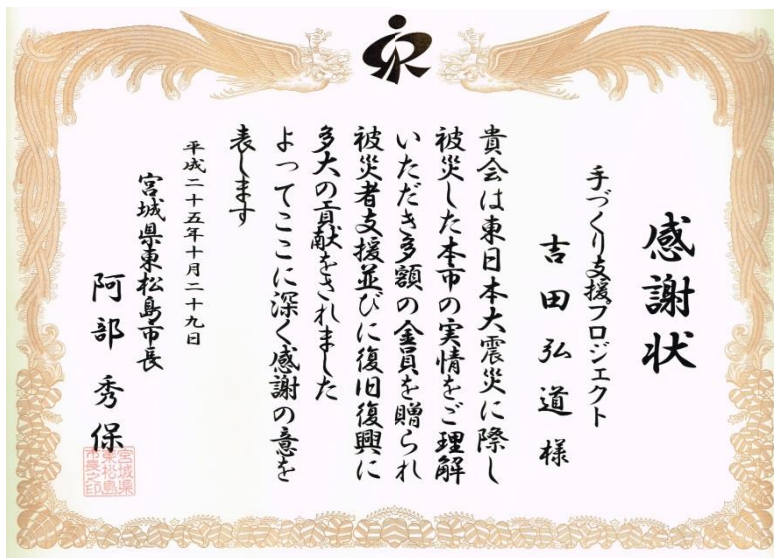 感謝状
手づくり支援プロジェクト
吉田弘道様
貴会は東日本大震災に際し
被災した本市の実情をご理解
いただき多額の金員を贈られ
被災者支援並びに復旧復興に
多大の貢献をされました
よってここに深く感謝の意を
表します
平成二十五年十月二十九日
宮城県東松島市長
阿部秀保
宮城県
東松島
市長之印